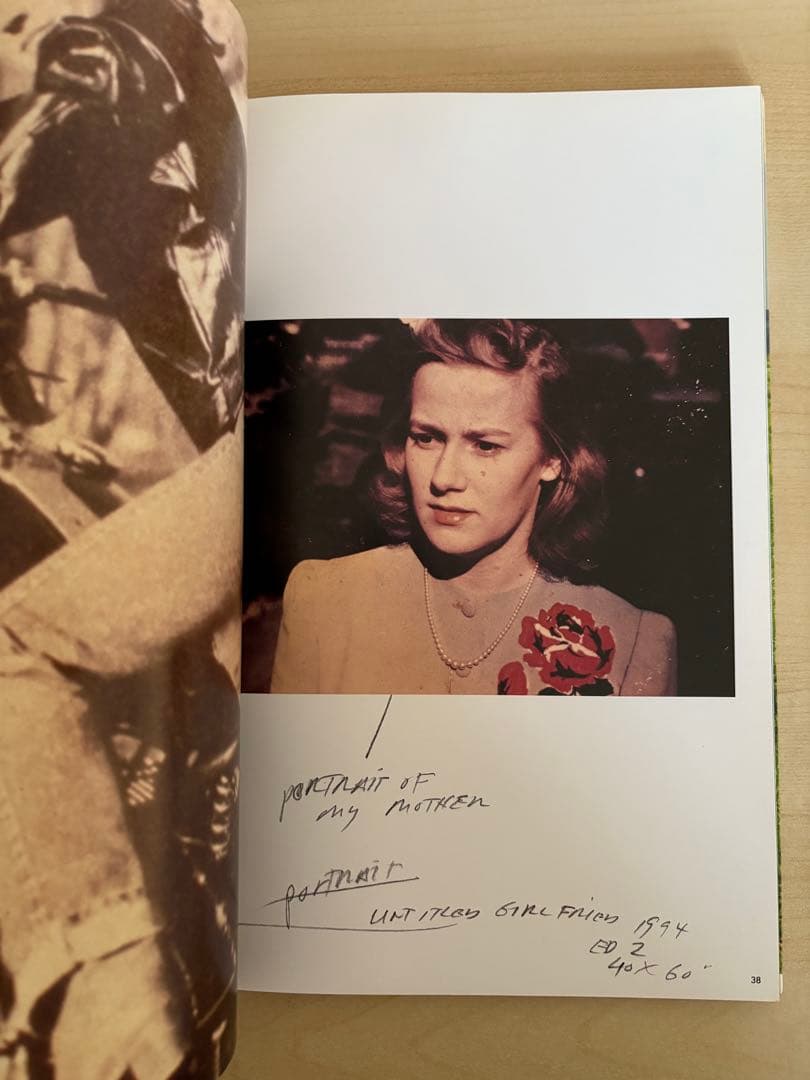 PORTRAIT OF
MY MOTHER
PORTRAIT
UNTITLED GIRLFRIED 1994
ED 2
40 X 60"
38